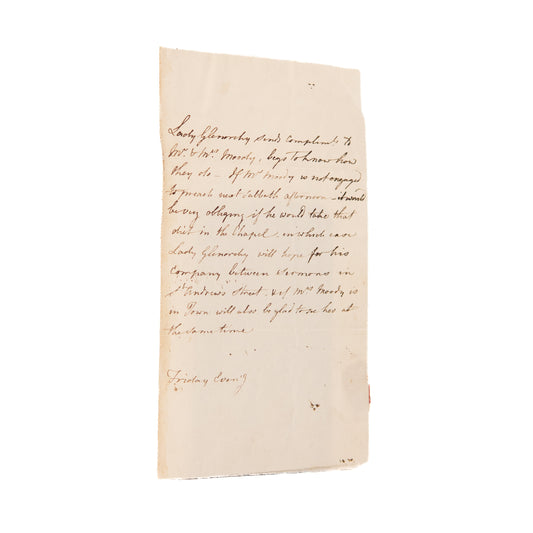 Lady Glenorchy sends complimts to
Mr. & Mrs. Moody, begs to know how
they do – If Mr Moody is not engaged
to preach next Sabbath afternoon – it would
be very obliging if he would take that
diet in the Chapel. in which case
Lady Glenorchy will hope for his
company between Sermons in
St Andrews Street, & if Mrs Moody is
in Town will also be glad to see her at
the same time
Friday Eveng